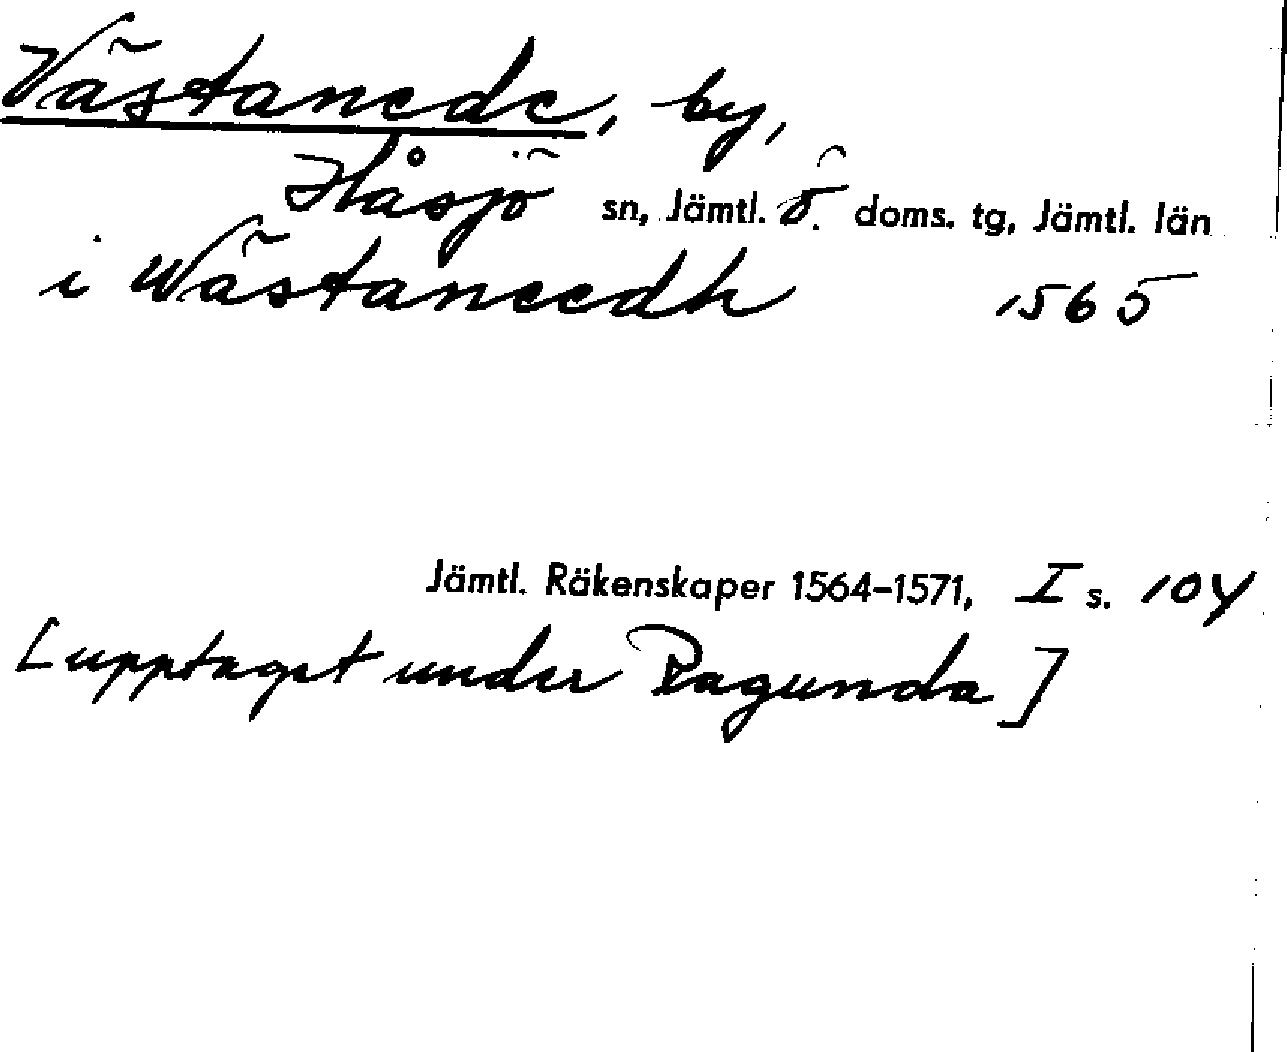 Västanede, by,
Håsjö sn, Jämtl. ö. doms. tg, Jämtl. län
i Wästaneedh 1565
Jämtl. Räkenskaper 1564-1571, I s. 104
[upptaget under Ragunda]